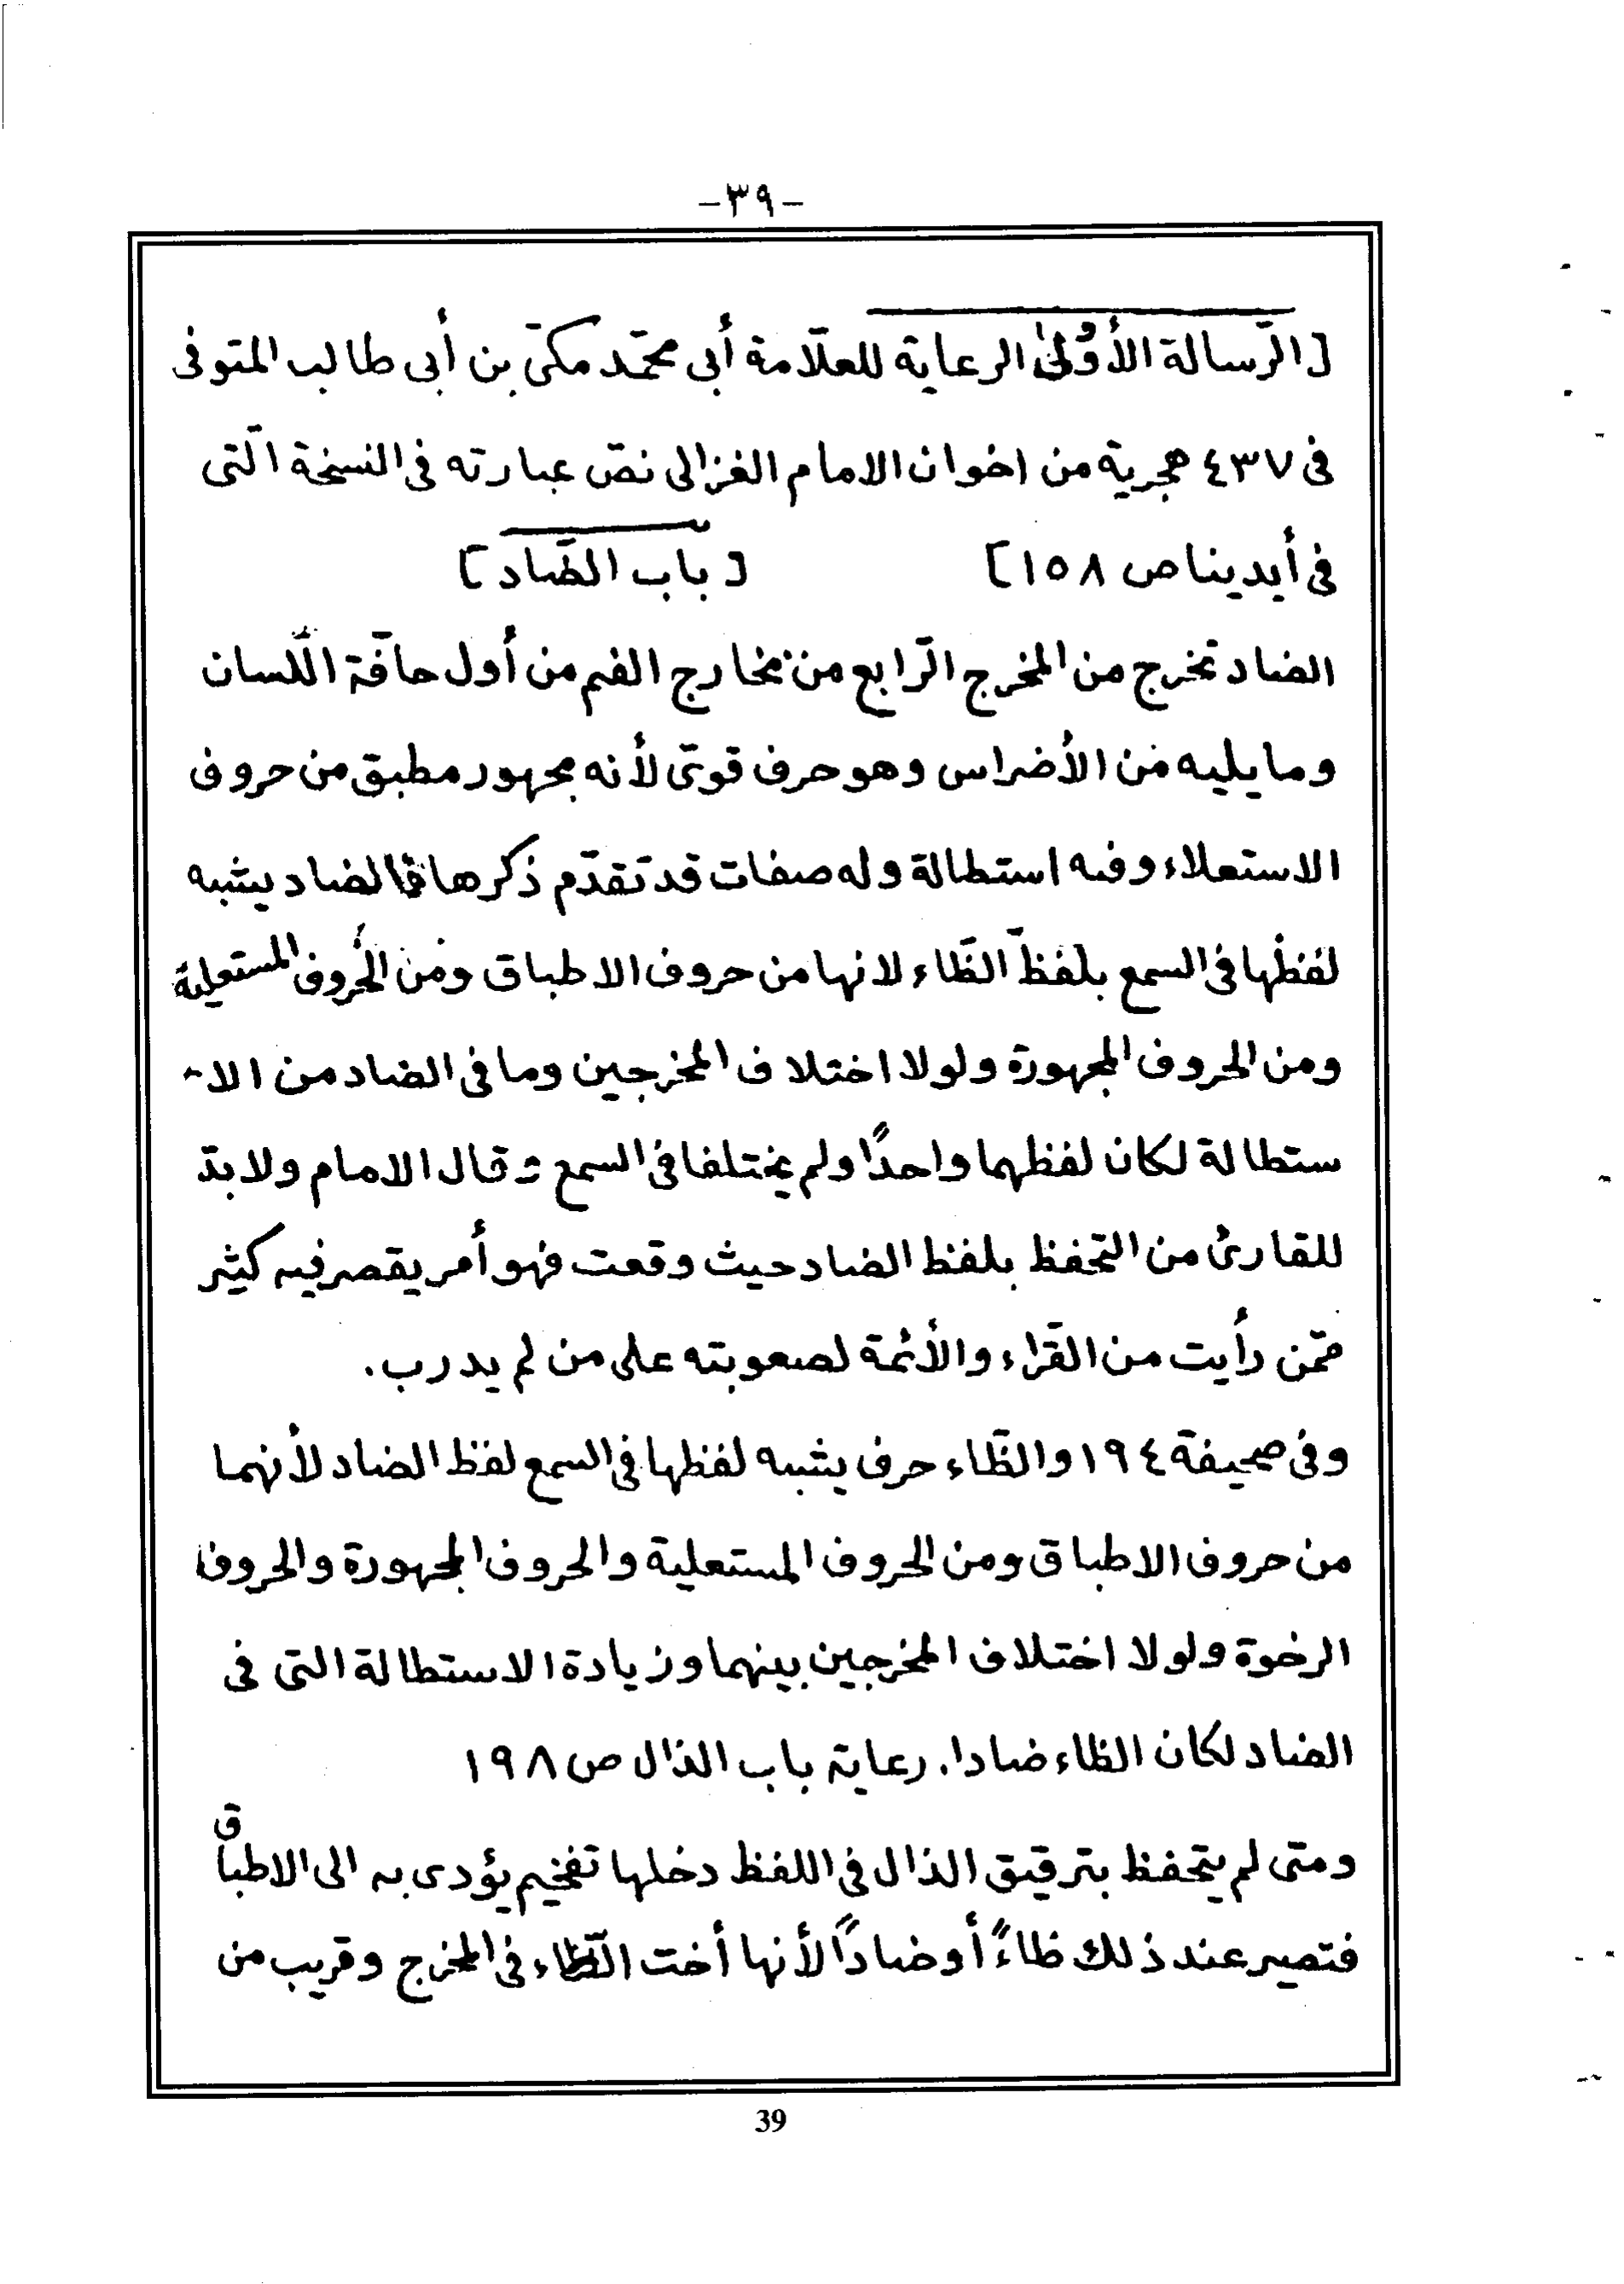 -٣٩-
[الرّسالة الأُولىٰ الرعاية للعلاّمة أبى محمّد مكىّ بن أبى طالب المتوفى
فى ٤٣٧ هجرية من اخوان الامام الغزالى نصّ عبارته فى النسخة الّتى
فى أيدينا ص ١٥٨] [باب الضّاد]
الضاد تخرج من المخرج الرّابع من مخارج الفم من أول حافّة اللّسان
وما يليه من الأضراس وهو حرف قوىّ لأنه مجهور مطبق من حروف
الاستعلاء وفيه استطالة وله صفات قد تقدّم ذكرها فالضاد يشبه
لفظها فى السمع بلفظ الظّاء لانها من حروف الاطباق ومن الحروف المستعلية
ومن الحروف المجهورة ولولا اختلاف المخرجين وما فى الضاد من الا-
ستطالة لكان لفظهما واحدًا ولم يختلفا فى السمع وقال الامام ولا بدّ
للقارئ من التحفظ بلفظ الضاد حيث وقعت فهو أمر يقصر فيه كثير
ممّن رأيت من القرّاء والأئمة لصعوبته على من لم يدرب.
وفى صحيفة ١٩٤ والظّاء حرف يشبه لفظها فى السمع لفظ الضاد لأنهما
من حروف الاطباق ومن الحروف المستعلية والحروف المجهورة والحروف
الرخوة ولولا اختلاف المخرجين بينهما وزيادة الاستطالة التى فى
الضاد لكان الظاء ضادا. رعاية باب الذال ص ١٩٨
ومتى لم يتحفظ بترقيق الذال فى اللفظ دخلها تفخيم يؤدى به الى الاطباق
فتصير عند ذلك ظاءً أو ضادًا لأنها أخت الظّاء فى المخرج وقريب من
39